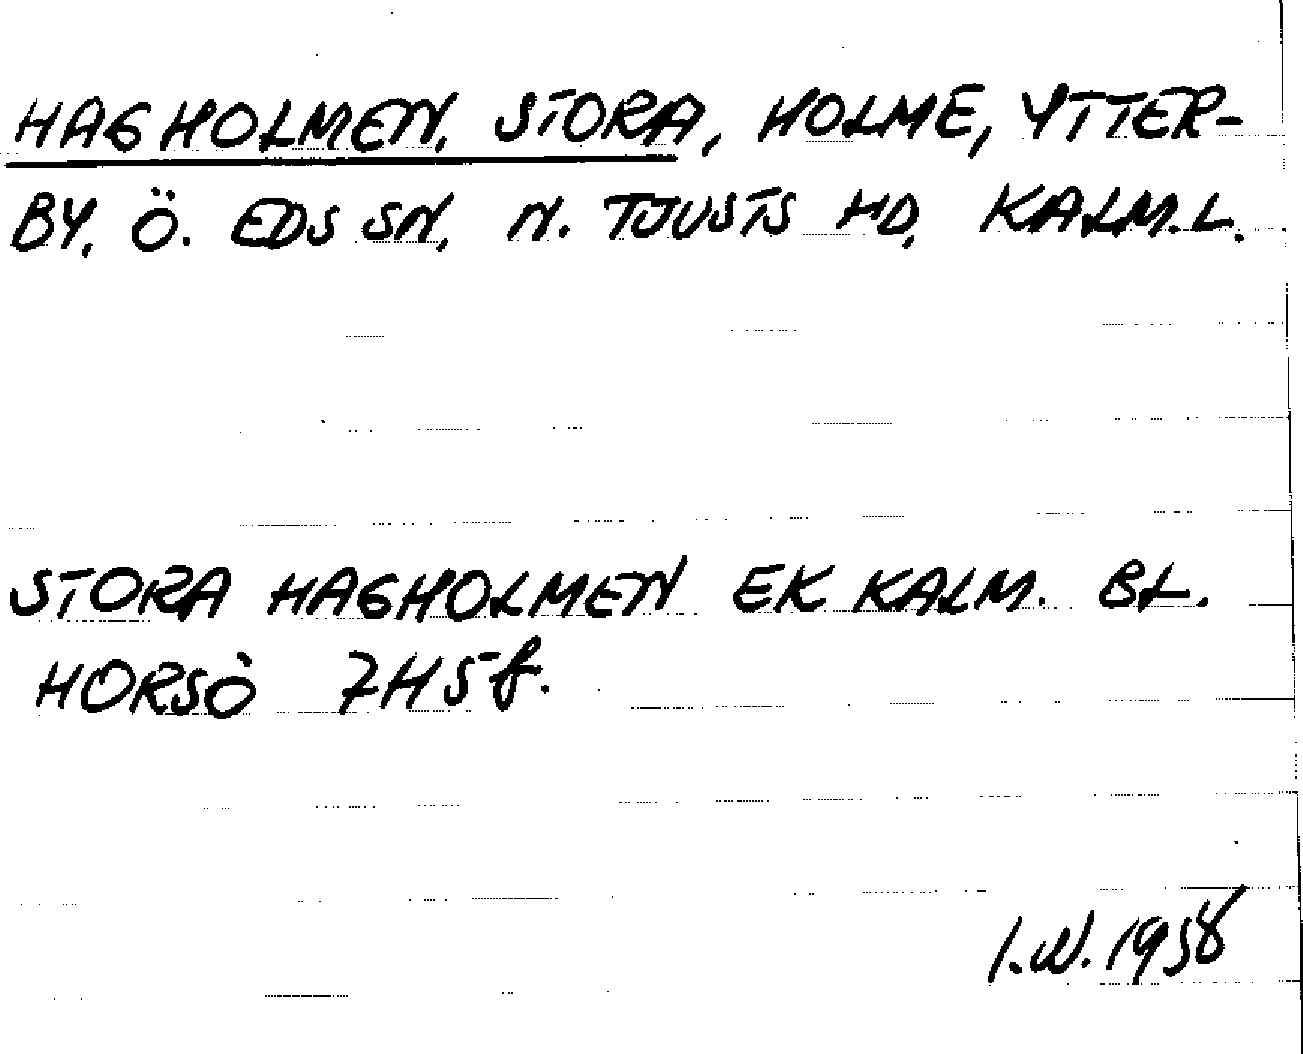 HAGHOLMEN, STORA, HOLME, YTTER-
BY, Ö. EDS SN, N. TJUSTS HD, KALM.L.
STORA HAGHOLMEN EK KALM. BL.
HORSÖ 7H5f.
I.W. 1958